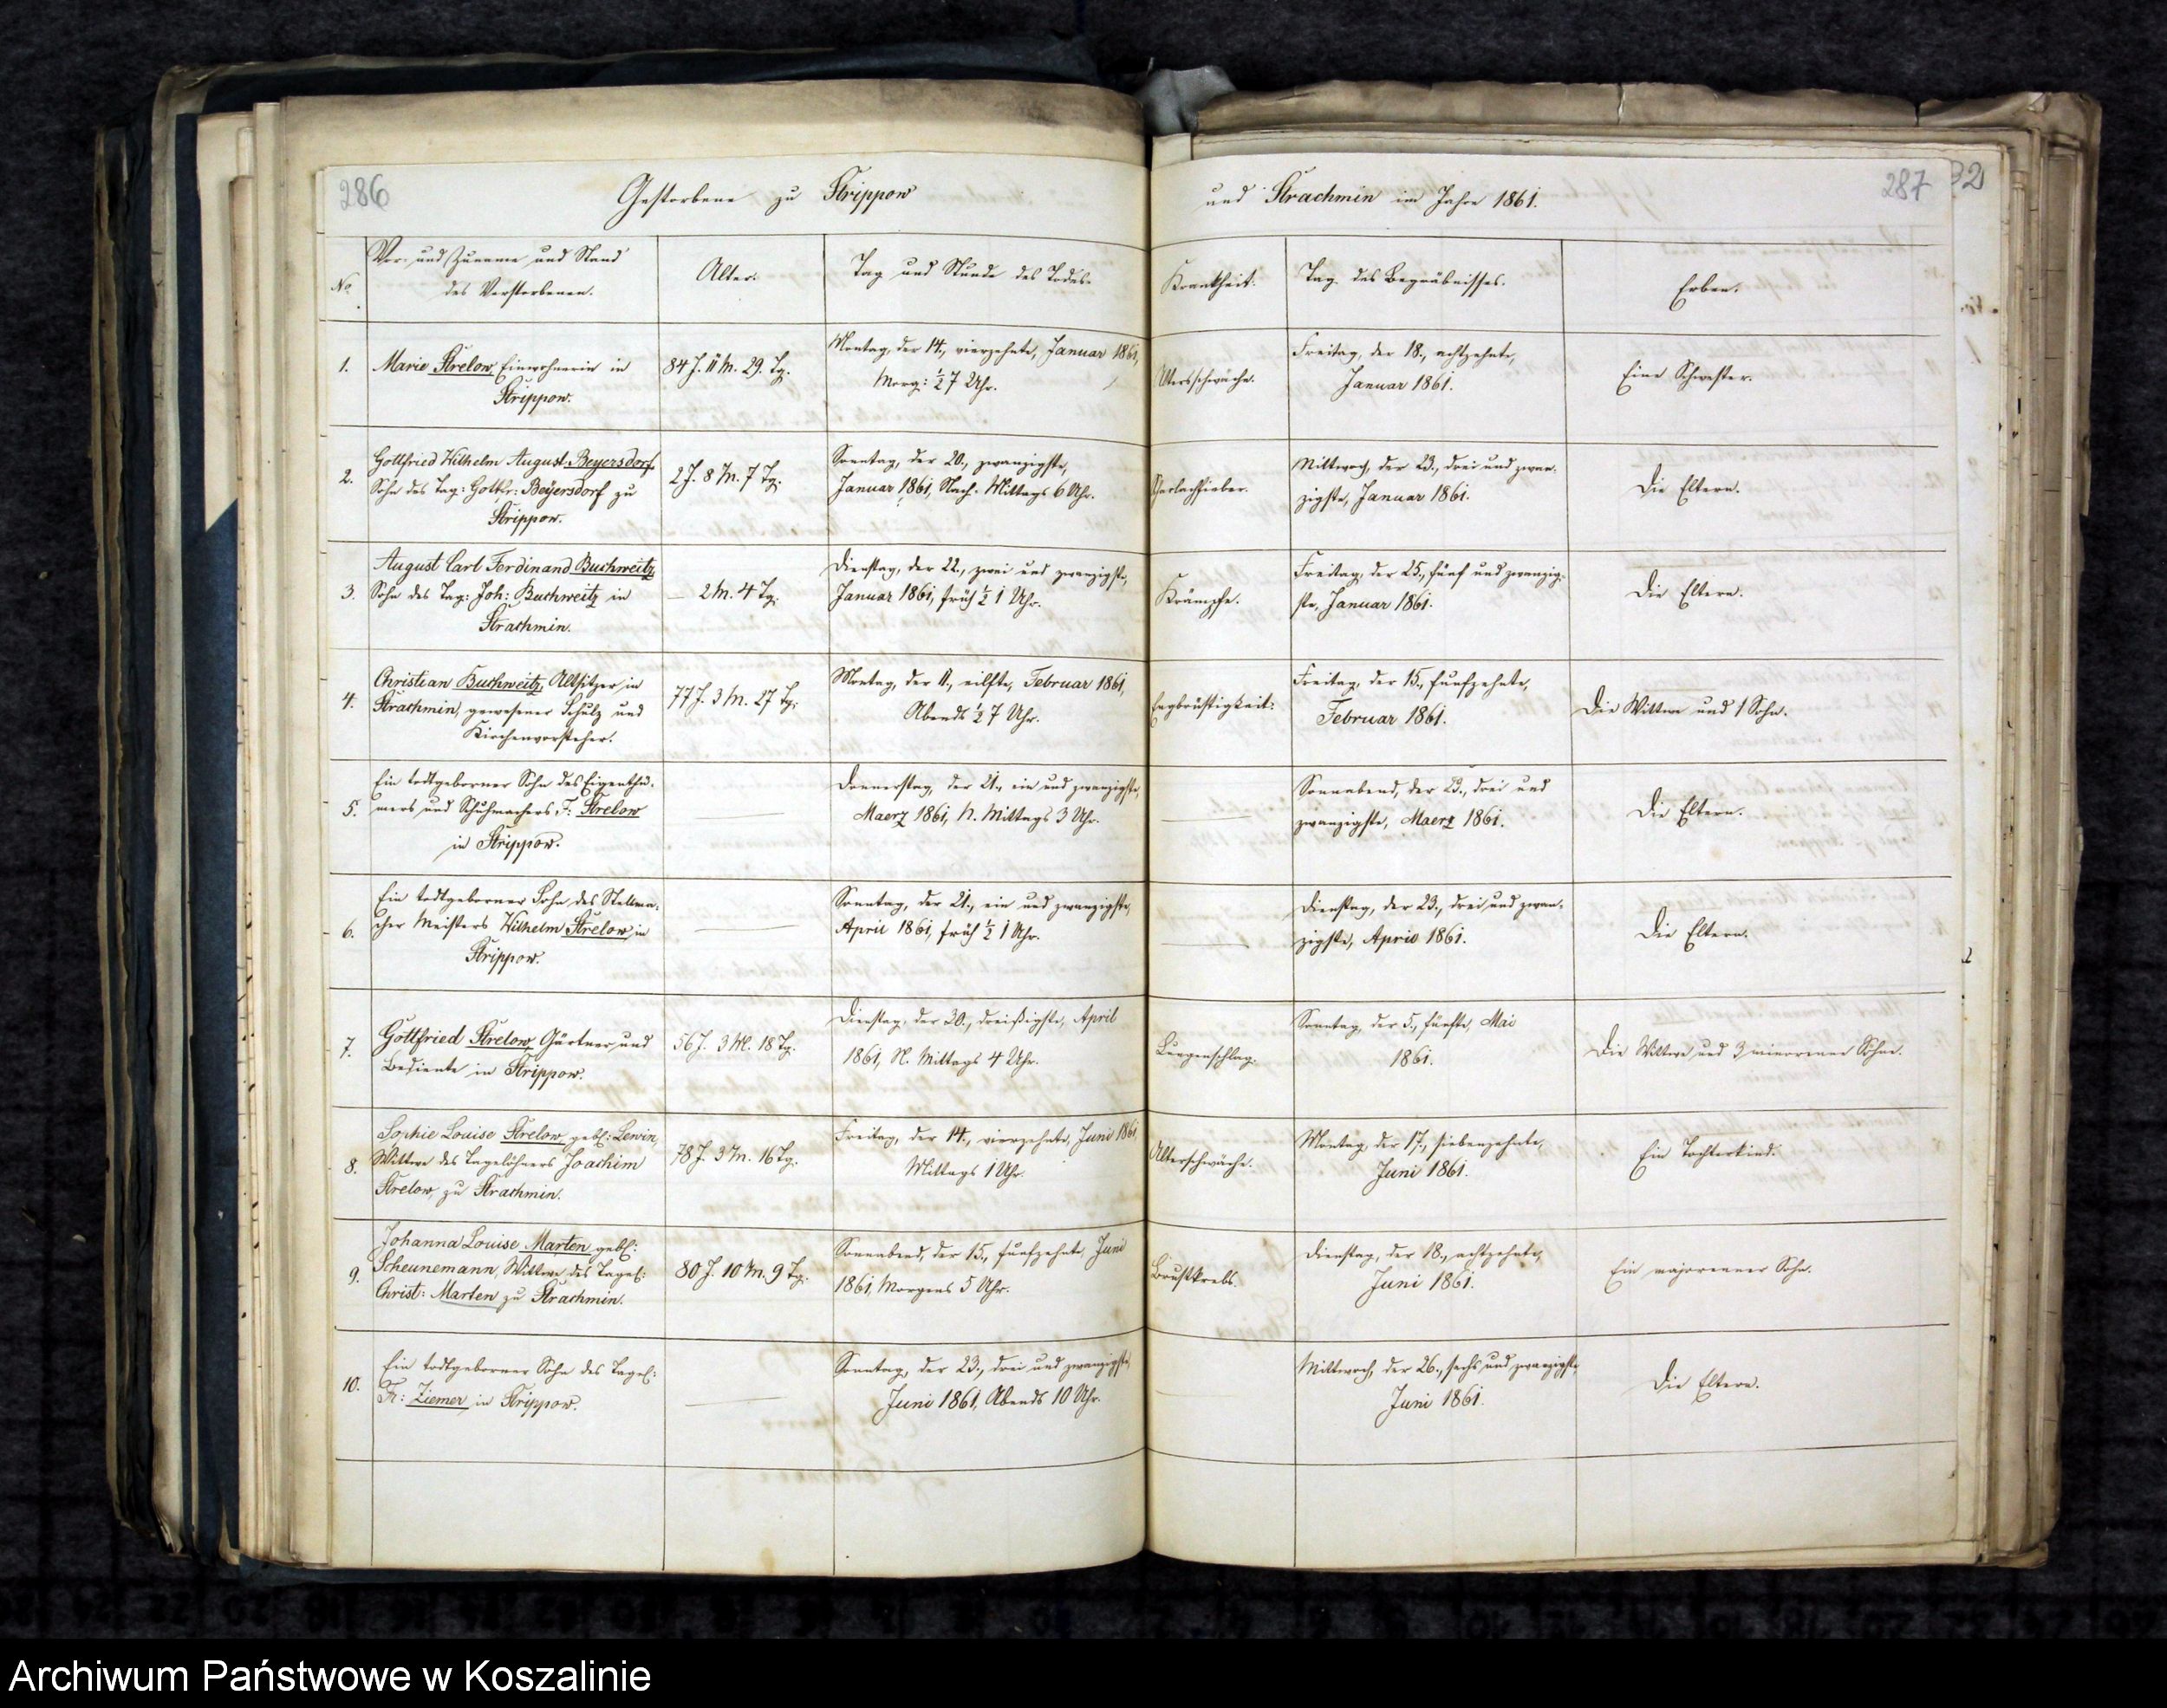 286
Gestorbene zu Strippow
und Strachmin im Jahre 1861.
287
32
No.
Vor- und Zuname und Stand
des Verstorbenen.
Alter.
Tag und Stunde des Todes.
Krankheit.
Tag des Begräbnisses.
Erben.
1.
Marie Strelow, Einwohnerin in
Strippow.
84 J. 11 M. 29. Tg.
Montag, der 14., vierzehnte, Januar 1861,
Morg: ½ 7 Uhr.
Altersschwäche.
Freitag, der 18., achtzehnte,
Januar 1861.
Eine Schwester.
2.
Gottfried Wilhelm August Beyersdorf,
Sohn des Tag: Gottfr: Beyersdorf zu
Strippow.
2 J. 8 M. 7 Tg.
Sonntag, der 20., zwanzigste,
Januar 1861, Nach-Mittags 6 Uhr.
Scharlachfieber.
Mittwoch, der 23., drei und zwan-
zigste, Januar 1861.
Die Eltern.
3.
August Carl Ferdinand Buchweitz
Sohn des Tag: Joh: Buchweitz in
Strachmin.
— 2 M. 4 Tg.
Dienstag, der 22., zwei und zwanzigste,
Januar 1861, früh ½ 1 Uhr.
Krämpfe.
Freitag, der 25., fünf und zwanzig-
ste, Januar 1861.
Die Eltern.
4.
Christian Buchweitz, Altsitzer in
Strachmin, gewesener Schulz und
Kirchenvorsteher.
77 J. 3 M. 27 Tg.
Montag, der 11., eilfte, Februar 1861,
Abends ½ 7 Uhr.
Engbrüstigkeit.
Freitag, der 15., funfzehnte,
Februar 1861.
Die Wittwe und 1 Sohn.
5.
Ein todtgeborner Sohn des Eigenthü-
mers und Schuhmachers F: Strelow
in Strippow.
Donnerstag, der 21., ein und zwanzigste,
Maerz 1861, N. Mittags 3 Uhr.
Sonnabend, der 23., drei und
zwanzigste, Maerz 1861.
Die Eltern.
6.
Ein todtgeborner Sohn des Stellma-
cher Meisters Wilhelm Strelow in
Strippow.
Sonntag, der 21., ein und zwanzigste,
April 1861, früh ½ 1 Uhr.
Dienstag, der 23., drei und zwan-
zigste, April 1861.
Die Eltern.
7.
Gottfried Strelow, Gärtner und
Bediente in Strippow.
56 J. 3 M. 18 Tg.
Dienstag, der 30., dreißigste, April
1861, N. Mittags 4 Uhr.
Lungenschlag.
Sonntag, der 5., fünfte, Mai
1861.
Die Wittwe und 3 minorenne Söhne.
8.
Sophie Louise Strelow, geb: Lewin,
Wittwe des Tagelöhners Joachim
Strelow, zu Strachmin.
78 J. 3 M. 16 Tg.
Freitag, der 14., vierzehnte, Juni 1861
Mittags 1 Uhr.
Alterschwäche.
Montag, der 17., siebenzehnte,
Juni 1861.
Ein Tochterkind.
9.
Johanna Louise Marten, geb:
Scheunemann, Wittwe des Tagel:
Christ: Marten zu Strachmin.
80 J. 10 M. 9 Tg.
Sonnabend, der 15., funfzehnte, Juni
1861, Morgens 5 Uhr.
Brustkrebs.
Dienstag, der 18., achtzehnte,
Juni 1861.
Ein majorenner Sohn.
10.
Ein todtgeborner Sohn des Tagel:
Fr: Ziemer in Strippow.
Sonntag, der 23., drei und zwanzigste,
Juni 1861, Abends 10 Uhr.
Mittwoch, der 26., sechs und zwanzigste,
Juni 1861.
Die Eltern.
Archiwum Państwowe w Koszalinie